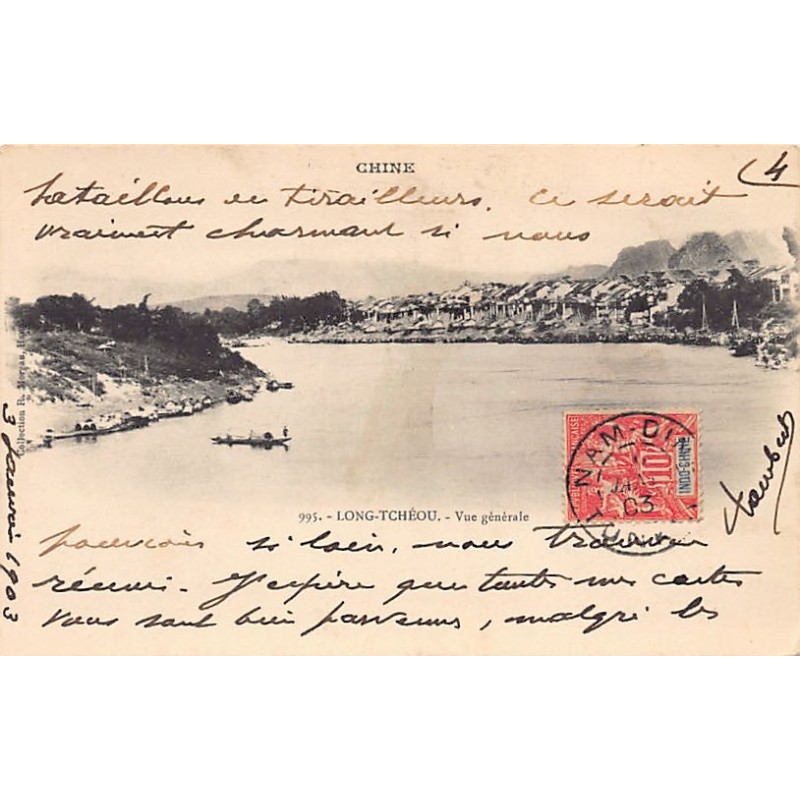 CHINE
4
bataillons de tirailleurs. Ce serait
vraiment charmant si nous
Collection R. Moreau,
3 Janvier 1903
INDO-CHINE
10
NAM-DI
1
03
995. - LONG-TCHÉOU. - Vue générale
pouvions si loin, nous trouver
réunis. J'espère que toutes mes cartes
vous sont bien parvenues, malgré les